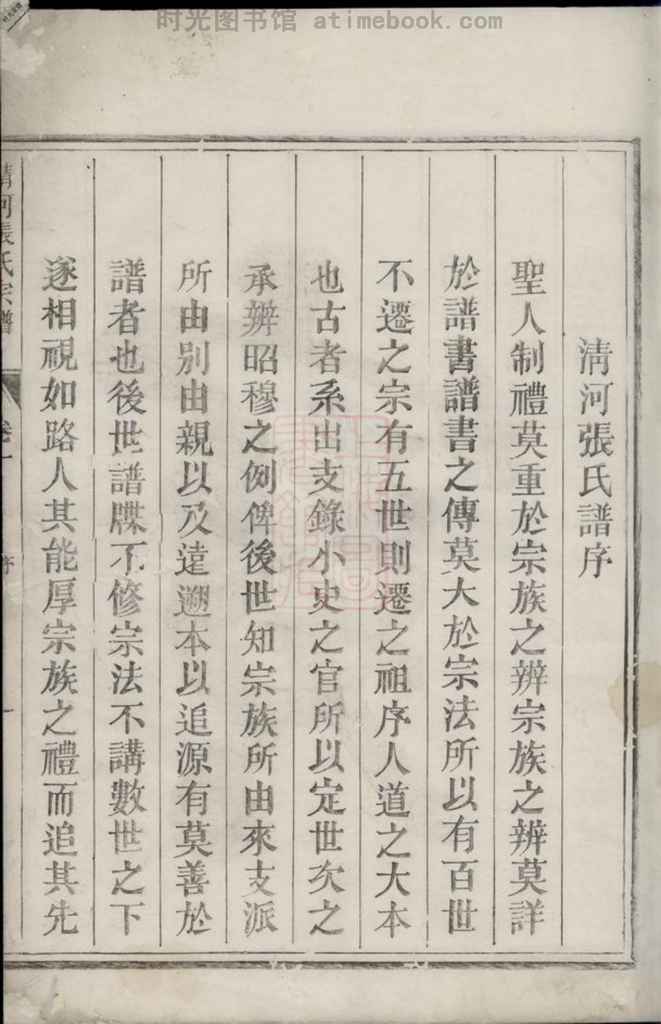 时光图书馆 atimebook.com
清河張氏譜序
聖人制禮莫重於宗族之辨宗族之辨莫詳
於譜書譜書之傳莫大於宗法所以有百世
不遷之宗有五世則遷之祖序人道之大本
也古者系出支錄小史之官所以定世次之
承辨昭穆之例俾後世知宗族所由來支派
所由別由親以及遠遡本以追源有莫善於
譜者也後世譜牒不修宗法不講數世之下
遂相視如路人其能厚宗族之禮而追其先
清河張氏宗譜 卷一 序 一